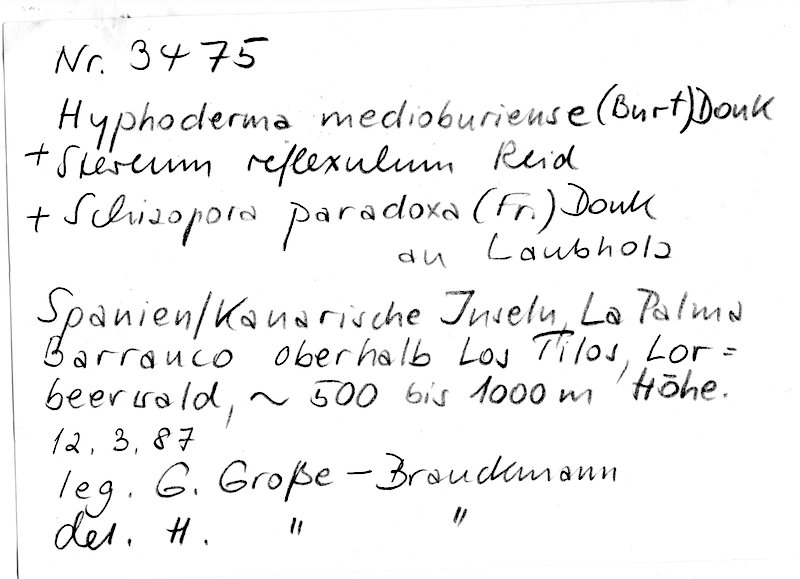 Nr. 3475
Hyphoderma medioburiense (Burt) Donk
+ Stereum reflexulum Reid
+ Schizopora paradoxa (Fr.) Donk
an Laubholz
Spanien/Kanarische Inseln, La Palma
Barranco oberhalb Los Tilos, Lor=
beerwald, ~ 500 bis 1000 m Höhe.
12. 3. 87
leg. G. Große-Brauckmann
det. H. " "